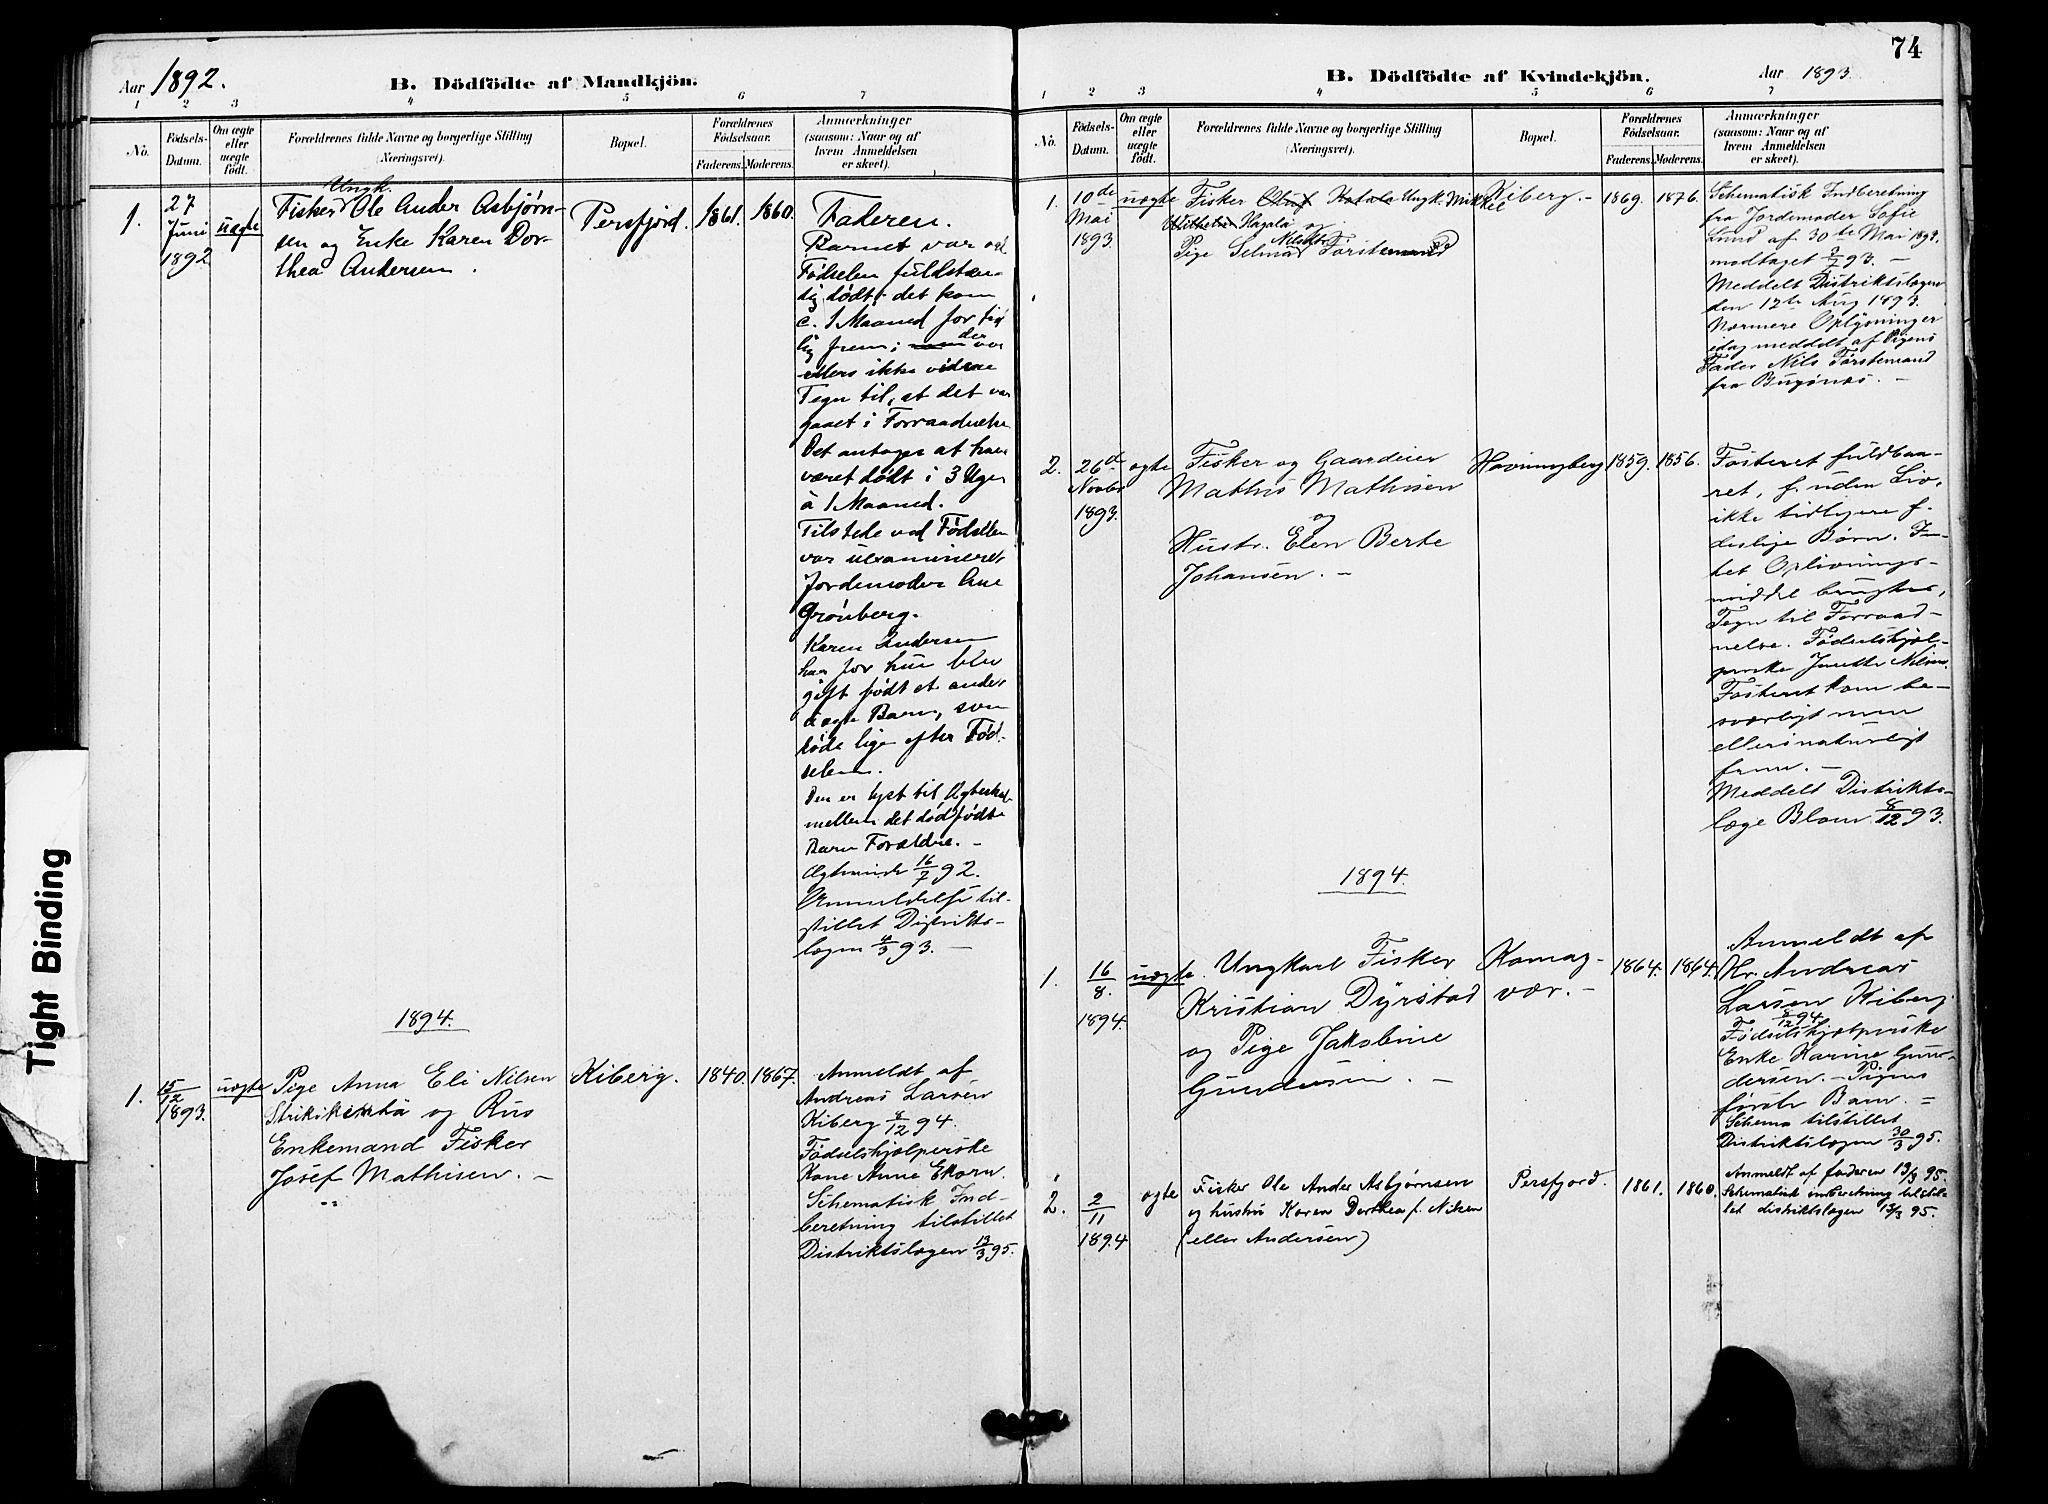 Tight Binding
Aar 1892.
B. Dödfödte af Mandkjön.
1 2 3 4 5 6 7
No.
Födsels-Datum.
Om ægte eller uægte födt.
Forældrenes fulde Navne og borgerlige Stilling (Næringsvei).
Bopæl.
Forældrenes Födselsaar.
Faderens. Moderens.
Anmærkninger (saasom: Naar og af hvem Anmeldelsen er skeet).
1.
27
Juni
1892
uægte
Ungk.
Fisker Ole Ander Asbjørn-
sen og Enke Karen Dor-
thea Andersen.
Persfjord.
1861.
1860.
Faderen.
Barnet var ved
Fødselen fuldstæn-
dig dødt; det kom
c. 1 Maaned for tid
lig frem; der var
ellers ikke videre
Tegn til, at det var
gaaet i Forraadnelse
Det antages at have
været dødt i 3 Uger
à 1 Maaned.
Tilstede ved Fødselen
var uexamineret
Jordemoder Ane
Grönberg.
Karen Andersen
har før hun blev
gift født et andet
uægte Barn, som
døde lige efter Fød-
selen.
Den er lyst til Ægteskab
mellem det dødfødte
Barns Forældre. -
16/7 92.
Anmeldelse til-
stillet Distrikts-
lægen 4/3 93. -
1894.
1.
15/12
1893.
uægte
Pige Anna Eli Nilsen
og Rus
Enkemand Fisker
Josef Mathisen. -
Kiberg.
1840.
1867.
Anmeldt af
Andreas Larsen
Kiberg 8/12 94.
Fødselshjælperske
Kone Anna Ekorn.
Schematisk Ind-
beretning tilstillet
Distriktslægen 13/3 95.
74
B. Dödfödte af Kvindekjön.
Aar 1893.
1 2 3 4 5 6 7
No.
Födsels-Datum.
Om ægte eller uægte födt.
Forældrenes fulde Navne og borgerlige Stilling (Næringsvei).
Bopæl.
Forældrenes Födselsaar.
Faderens. Moderens.
Anmærkninger (saasom: Naar og af hvem Anmeldelsen er skeet).
1.
10de
Mai
1893.
uægte
Fisker Ungk. Mikkel
Hagala og
Pige Selma Nilsdtr. Førstemand
Kiberg. -
1869.
1876.
Schematisk Indberetning
fra Jordemoder Sofie
Lund af 30te Mai 1893,
modtaget 2/7 93. -
Meddelt Distriktslægen
den 12te Aug 1893.
Nærmere Oplysninger
idag meddelt af Pigens
Fader Nils Førstemand
fra Bugönæs. -
2.
26de
Novbr
1893.
ægte
Fisker og Gaardeier
Mathis Mathisen
og
Hustr. Elen Berte
Johansen. -
Havningberg
1859.
1856.
Fosteret fuldbaa-
ret, f. uden Liv,
ikke tidligere f.
deslige Børn. In-
tet Oplivnings-
middel brugtes,
Tegn til Forraad-
nelse. Fødselshjæl-
perske Nilsen.
Fosteret kom be-
sværligt men
ellers naturligt
frem. -
Meddelt Distrikts-
læge Blom 8/12 93.
1894.
1.
16/8.
1894.
uægte.
Ungkarl Fisker
Kristian Dyrstad
og Pige Jakobine
Gundersen. -
Komag-
vær. -
1864.
1864.
Anmeldt af
Hr. Andreas
Larsen Kiberg.
8/12 94.
Fødselshjælperske
Enke Karine Gun-
dersen. - Pigens
første Barn. -
Schema tilstillet
Distriktslægen 30/3 95.
2.
2/11
1894
ægte
Fisker Ole Ander Asbjørnsen
og hustru Karen Dorthea f. Nilsen
(eller Andersen)
Persfjord.
1861.
1860.
Anmeldt af faderen 13/3 95.
Schematisk inberetning tilstil-
let distriktslægen 13/3 95.